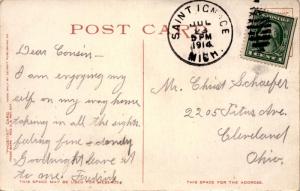 POST CARD
SAINT IGNACE
JUL
23
5 PM
1914
MICH.
Dear Cousin—
I am enjoying my
self on my way home
taking in all the sights.
feeling fine & dandy
Goodnight leave it
to me. Fredrick
Mr. Christ Schaefer
2205 Titus Ave.
Cleveland
Ohio.
THIS SPACE MAY BE USED FOR MESSAGE
THIS SPACE FOR THE ADDRESS.